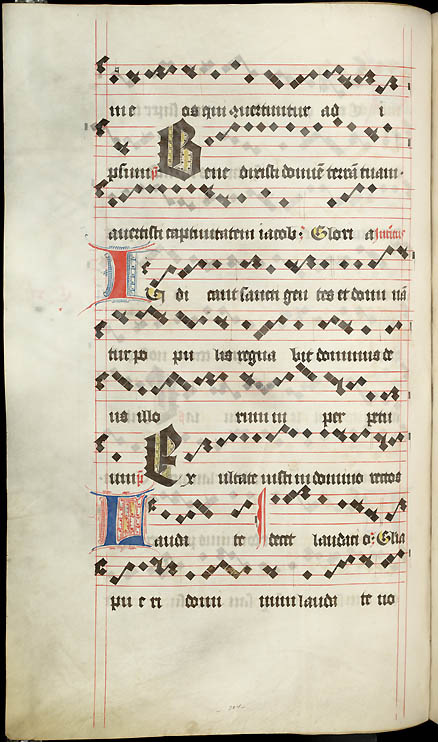 me os qui conuertuntur ad i
psum p̄ Bene dixisti domīe terrā tuam
auertisti captiuitatem iacob: Glori a Introitus
Iu di cant sancti gen tes et domi nā
tur po pu lis regna bit dominus de
us illo rum in per petu
um p̄ Ex ultate iusti in domino rectos
Lauda te decet laudaci o: Glīa
pu e ri domi num lauda te no